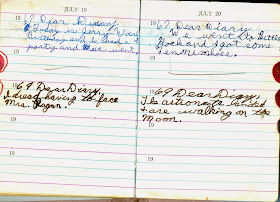 JULY 19
67 Dear Diary
Today is Jerry
Birthday and he had a
party and we went.
19
69 Dear Diary,
I dread having to face
Mrs. Ragan.
19
19
JULY 20
67 Dear Diary
We went to Battle
Rock and I got some
19
69 Dear Diary
The astronots landed
& are walking on the
Moon.
19
19